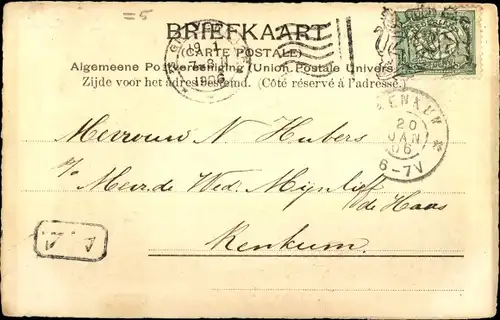 =5
BRIEFKAART
(CARTE POSTALE)
Algemeene Postvereeniging (Union Postale Universelle)
Zijde voor het adres bestemd. (Côté réservé à l'adresse.)
RENKUM
20
JAN
06
6-7V
Mevrouw N. Hubers
p/o Mevr. de Wed. Mijnlieff
de Haas
Renkum.